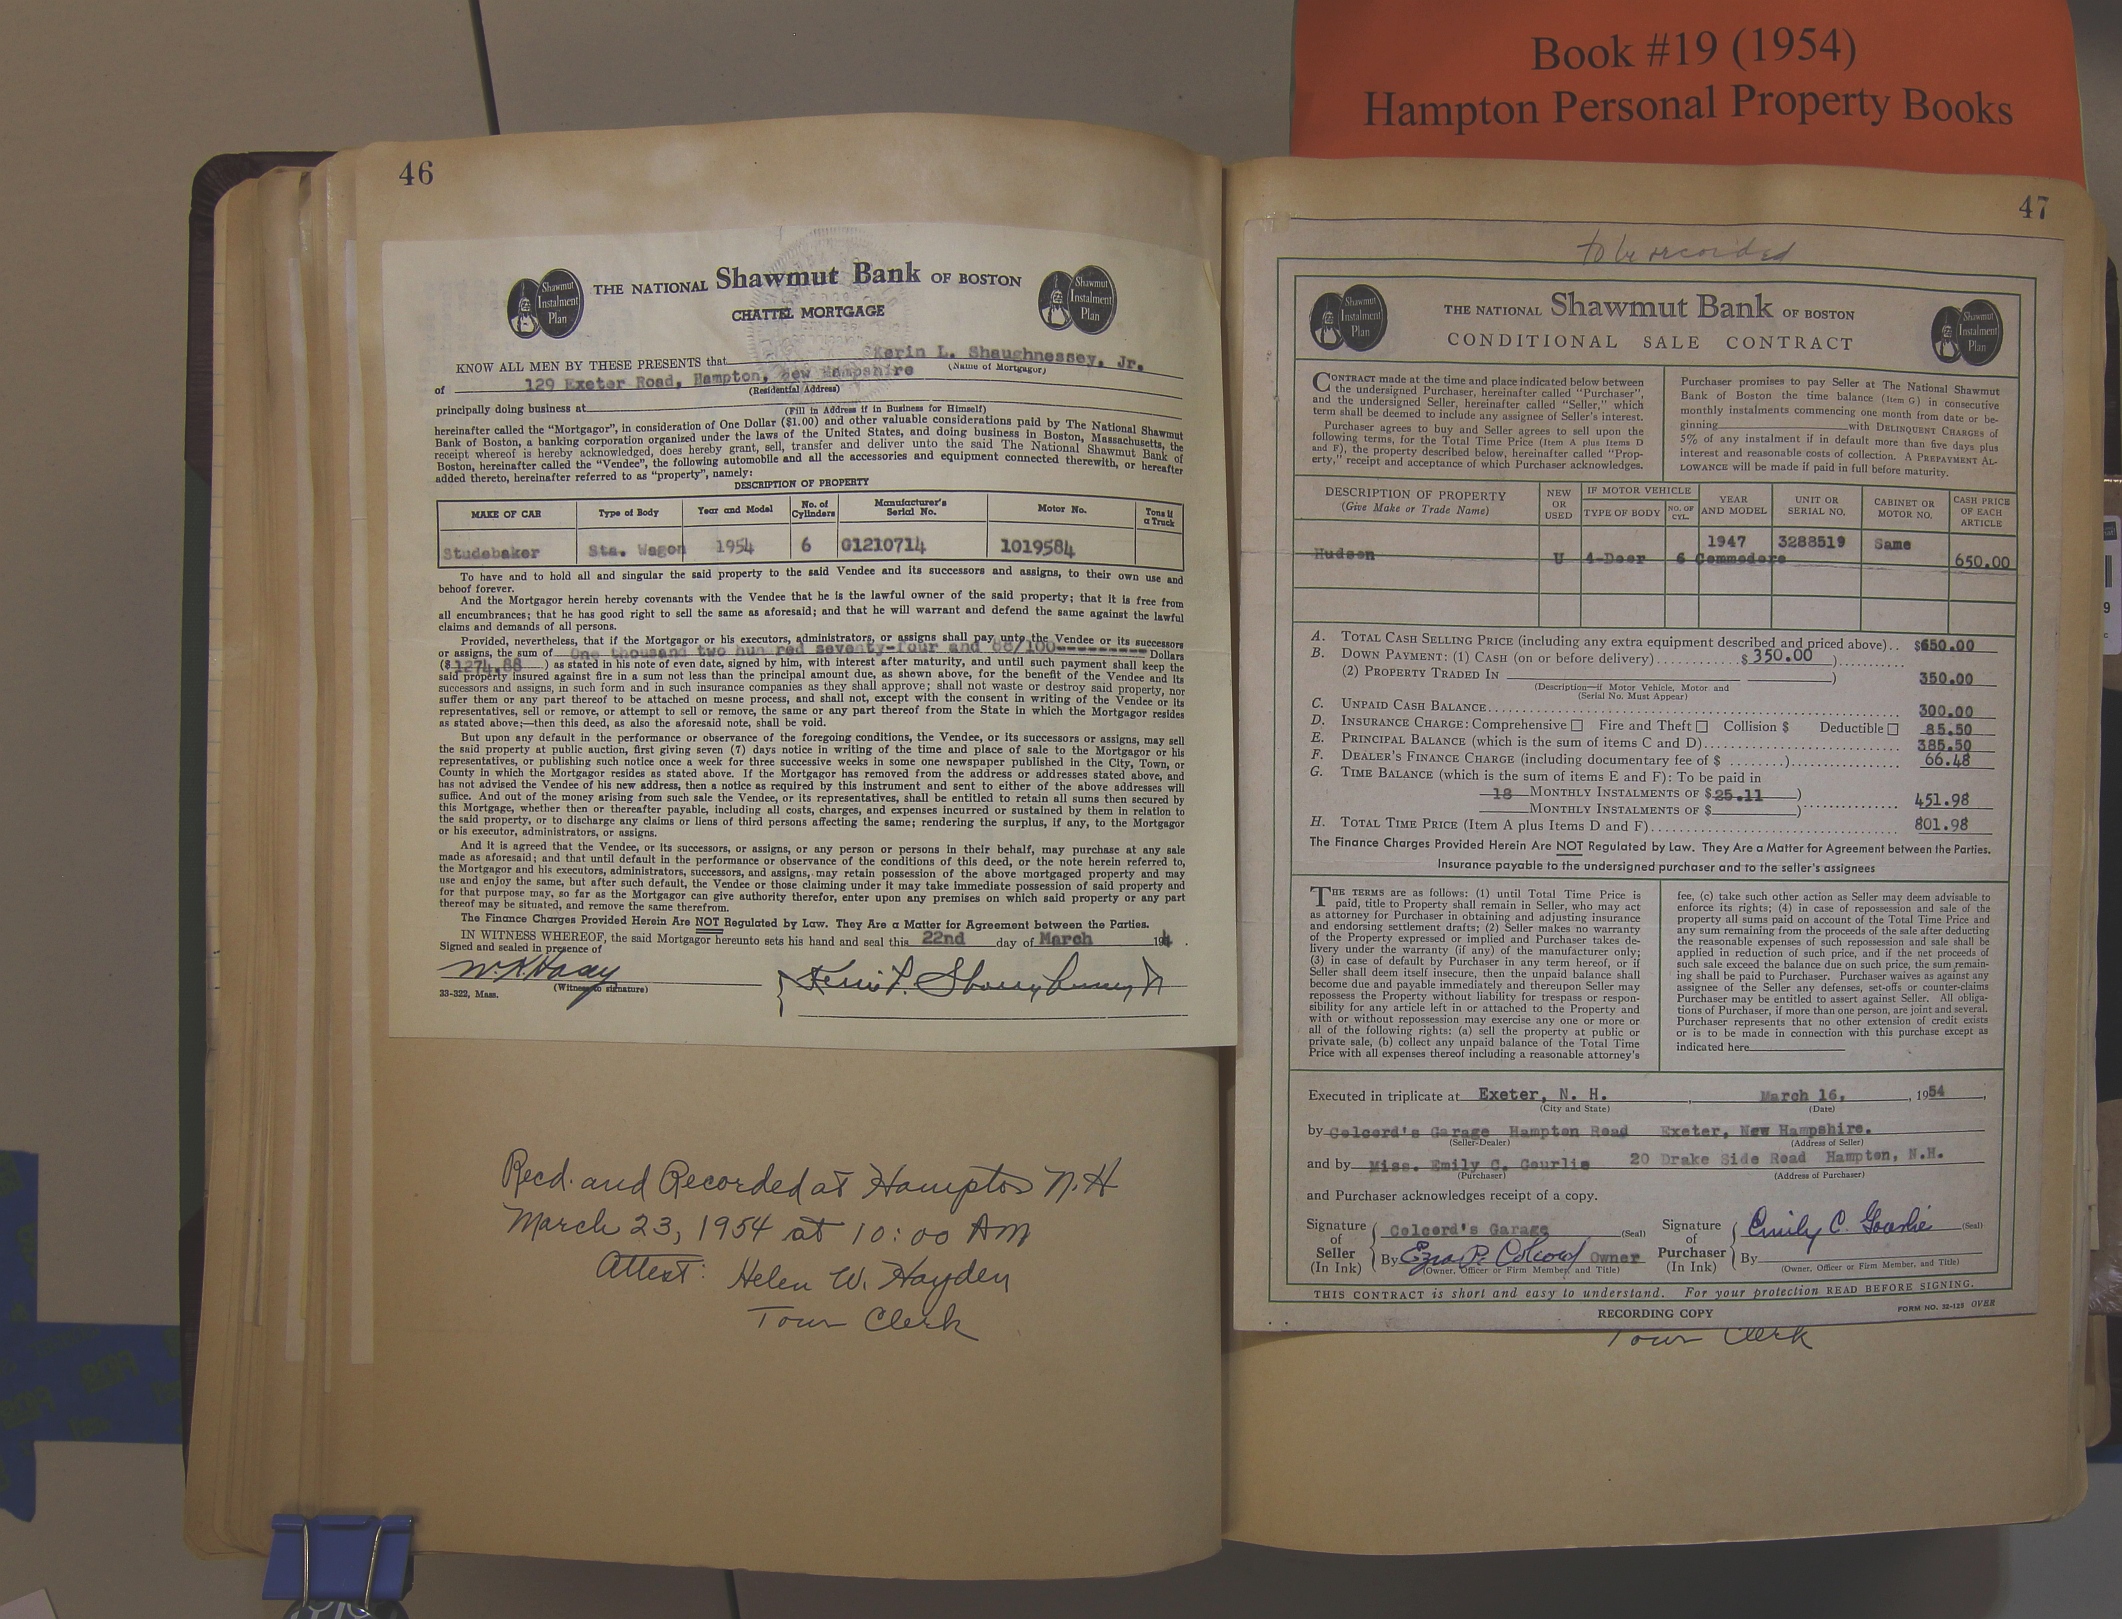 Book #19 (1954)
Hampton Personal Property Books
46
Shawmut
Instalment
Plan
THE NATIONAL Shawmut Bank OF BOSTON
CHATTEL MORTGAGE
Shawmut
Instalment
Plan
KNOW ALL MEN BY THESE PRESENTS that Kerin L. Shaughnessey, Jr.
(Name of Mortgagor)
of 129 Exeter Road, Hampton, New Hampshire
(Residential Address)
principally doing business at
(Fill in Address if in Business for Himself)
hereinafter called the "Mortgagor", in consideration of One Dollar ($1.00) and other valuable considerations paid by The National Shawmut
Bank of Boston, a banking corporation organized under the laws of the United States, and doing business in Boston, Massachusetts, the
receipt whereof is hereby acknowledged, does hereby grant, sell, transfer and deliver unto the said The National Shawmut Bank of
Boston, hereinafter called the "Vendee", the following automobile and all the accessories and equipment connected therewith, or hereafter
added thereto, hereinafter referred to as "property", namely:
DESCRIPTION OF PROPERTY
MAKE OF CAR Type of Body Year and Model No. of Cylinders Manufacturer's Serial No. Motor No. Tons if a Truck
Studebaker Sta. Wagon 1954 6 G1210714 1019584
To have and to hold all and singular the said property to the said Vendee and its successors and assigns, to their own use and
behoof forever.
And the Mortgagor herein hereby covenants with the Vendee that he is the lawful owner of the said property; that it is free from
all encumbrances; that he has good right to sell the same as aforesaid; and that he will warrant and defend the same against the lawful
claims and demands of all persons.
Provided, nevertheless, that if the Mortgagor or his executors, administrators, or assigns shall pay unto the Vendee or its successors
or assigns, the sum of One thousand two hundred seventy-four and 88/100--------- Dollars
($1274.88) as stated in his note of even date, signed by him, with interest after maturity, and until such payment shall keep the
said property insured against fire in a sum not less than the principal amount due, as shown above, for the benefit of the Vendee and its
successors and assigns, in such form and in such insurance companies as they shall approve; shall not waste or destroy said property, nor
suffer them or any part thereof to be attached on mesne process, and shall not, except with the consent in writing of the Vendee or its
representatives, sell or remove, or attempt to sell or remove, the same or any part thereof from the State in which the Mortgagor resides
as stated above;—then this deed, as also the aforesaid note, shall be void.
But upon any default in the performance or observance of the foregoing conditions, the Vendee, or its successors or assigns, may sell
the said property at public auction, first giving seven (7) days notice in writing of the time and place of sale to the Mortgagor or his
representatives, or publishing such notice once a week for three successive weeks in some one newspaper published in the City, Town, or
County in which the Mortgagor resides as stated above. If the Mortgagor has removed from the address or addresses stated above, and
has not advised the Vendee of his new address, then a notice as required by this instrument and sent to either of the above addresses will
suffice. And out of the money arising from such sale the Vendee, or its representatives, shall be entitled to retain all sums then secured by
this Mortgage, whether then or thereafter payable, including all costs, charges, and expenses incurred or sustained by them in relation to
the said property, or to discharge any claims or liens of third persons affecting the same; rendering the surplus, if any, to the Mortgagor
or his executor, administrators, or assigns.
And it is agreed that the Vendee, or its successors, or assigns, or any person or persons in their behalf, may purchase at any sale
made as aforesaid; and that until default in the performance or observance of the conditions of this deed, or the note herein referred to,
the Mortgagor and his executors, administrators, successors, and assigns, may retain possession of the above mortgaged property and may
use and enjoy the same, but after such default, the Vendee or those claiming under it may take immediate possession of said property and
for that purpose may, so far as the Mortgagor can give authority therefor, enter upon any premises on which said property or any part
thereof may be situated, and remove the same therefrom.
The Finance Charges Provided Herein Are NOT Regulated by Law. They Are a Matter for Agreement between the Parties.
IN WITNESS WHEREOF, the said Mortgagor hereunto sets his hand and seal this 22nd day of March 194.
Signed and sealed in presence of
(Witness to signature)
33-322, Mass.
Recd. and Recorded at Hampton N.H
March 23, 1954 at 10:00 AM
Attest: Helen W. Hayden
Town Clerk
47
to be recorded
Shawmut
Instalment
Plan
THE NATIONAL Shawmut Bank OF BOSTON
CONDITIONAL SALE CONTRACT
Shawmut
Instalment
Plan
CONTRACT made at the time and place indicated below between
the undersigned Purchaser, hereinafter called "Purchaser",
and the undersigned Seller, hereinafter called "Seller," which
term shall be deemed to include any assignee of Seller's interest.
Purchaser agrees to buy and Seller agrees to sell upon the
following terms, for the Total Time Price (Item A plus Items D
and F), the property described below, hereinafter called "Prop-
erty," receipt and acceptance of which Purchaser acknowledges.
Purchaser promises to pay Seller at The National Shawmut
Bank of Boston the time balance (Item G) in consecutive
monthly instalments commencing one month from date or be-
ginning with DELINQUENT CHARGES of
5% of any instalment if in default more than five days plus
interest and reasonable costs of collection. A PREPAYMENT AL-
LOWANCE will be made if paid in full before maturity.
DESCRIPTION OF PROPERTY (Give Make or Trade Name) NEW OR USED IF MOTOR VEHICLE TYPE OF BODY NO. OF CYL. YEAR AND MODEL UNIT OR SERIAL NO. CABINET OR MOTOR NO. CASH PRICE OF EACH ARTICLE
1947 3288519 Same
Hudson U 4-Door 6 Commodore 650.00
A. TOTAL CASH SELLING PRICE (including any extra equipment described and priced above).. $650.00
B. DOWN PAYMENT: (1) CASH (on or before delivery)............$350.00)..........
(2) PROPERTY TRADED IN ) 350.00
(Description—if Motor Vehicle, Motor and
Serial No. Must Appear)
C. UNPAID CASH BALANCE.......... 300.00
D. INSURANCE CHARGE: Comprehensive □ Fire and Theft □ Collision $ Deductible □ 85.50
E. PRINCIPAL BALANCE (which is the sum of items C and D).......... 385.50
F. DEALER'S FINANCE CHARGE (including documentary fee of $ ........).......... 66.48
G. TIME BALANCE (which is the sum of items E and F): To be paid in
18 MONTHLY INSTALMENTS OF $25.11)
MONTHLY INSTALMENTS OF $ ).......... 451.98
H. TOTAL TIME PRICE (Item A plus Items D and F).......... 801.98
The Finance Charges Provided Herein Are NOT Regulated by Law. They Are a Matter for Agreement between the Parties.
Insurance payable to the undersigned purchaser and to the seller's assignees
THE TERMS are as follows: (1) until Total Time Price is
paid, title to Property shall remain in Seller, who may act
as attorney for Purchaser in obtaining and adjusting insurance
and endorsing settlement drafts; (2) Seller makes no warranty
of the Property expressed or implied and Purchaser takes de-
livery under the warranty (if any) of the manufacturer only;
(3) in case of default by Purchaser in any term hereof, or if
Seller shall deem itself insecure, then the unpaid balance shall
become due and payable immediately and thereupon Seller may
repossess the Property without liability for trespass or respon-
sibility for any article left in or attached to the Property and
with or without repossession may exercise any one or more or
all of the following rights: (a) sell the property at public or
private sale, (b) collect any unpaid balance of the Total Time
Price with all expenses thereof including a reasonable attorney's
fee, (c) take such other action as Seller may deem advisable to
enforce its rights; (4) in case of repossession and sale of the
property all sums paid on account of the Total Time Price and
any sum remaining from the proceeds of the sale after deducting
the reasonable expenses of such repossession and sale shall be
applied in reduction of such price, and if the net proceeds of
such sale exceed the balance due on such price, the sum remain-
ing shall be paid to Purchaser. Purchaser waives as against any
assignee of the Seller any defenses, set-offs or counter-claims
Purchaser may be entitled to assert against Seller. All obliga-
tions of Purchaser, if more than one person, are joint and several.
Purchaser represents that no other extension of credit exists
or is to be made in connection with this purchase except as
indicated here
Executed in triplicate at Exeter, N. H., March 16, 1954,
(City and State) (Date)
by Colcord's Garage Hampton Road Exeter, New Hampshire.
(Seller-Dealer) (Address of Seller)
and by Miss. Emily C. Gourlie 20 Drake Side Road Hampton, N.H.
(Purchaser) (Address of Purchaser)
and Purchaser acknowledges receipt of a copy.
Signature of Seller (In Ink) Colcord's Garage (Seal)
By Ezra P. Colcord Owner
(Owner, Officer or Firm Member, and Title)
Signature of Purchaser (In Ink) Emily C. Gourlie (Seal)
By
(Owner, Officer or Firm Member, and Title)
THIS CONTRACT is short and easy to understand. For your protection READ BEFORE SIGNING.
RECORDING COPY
FORM NO. 32-125 OVER
Town Clerk